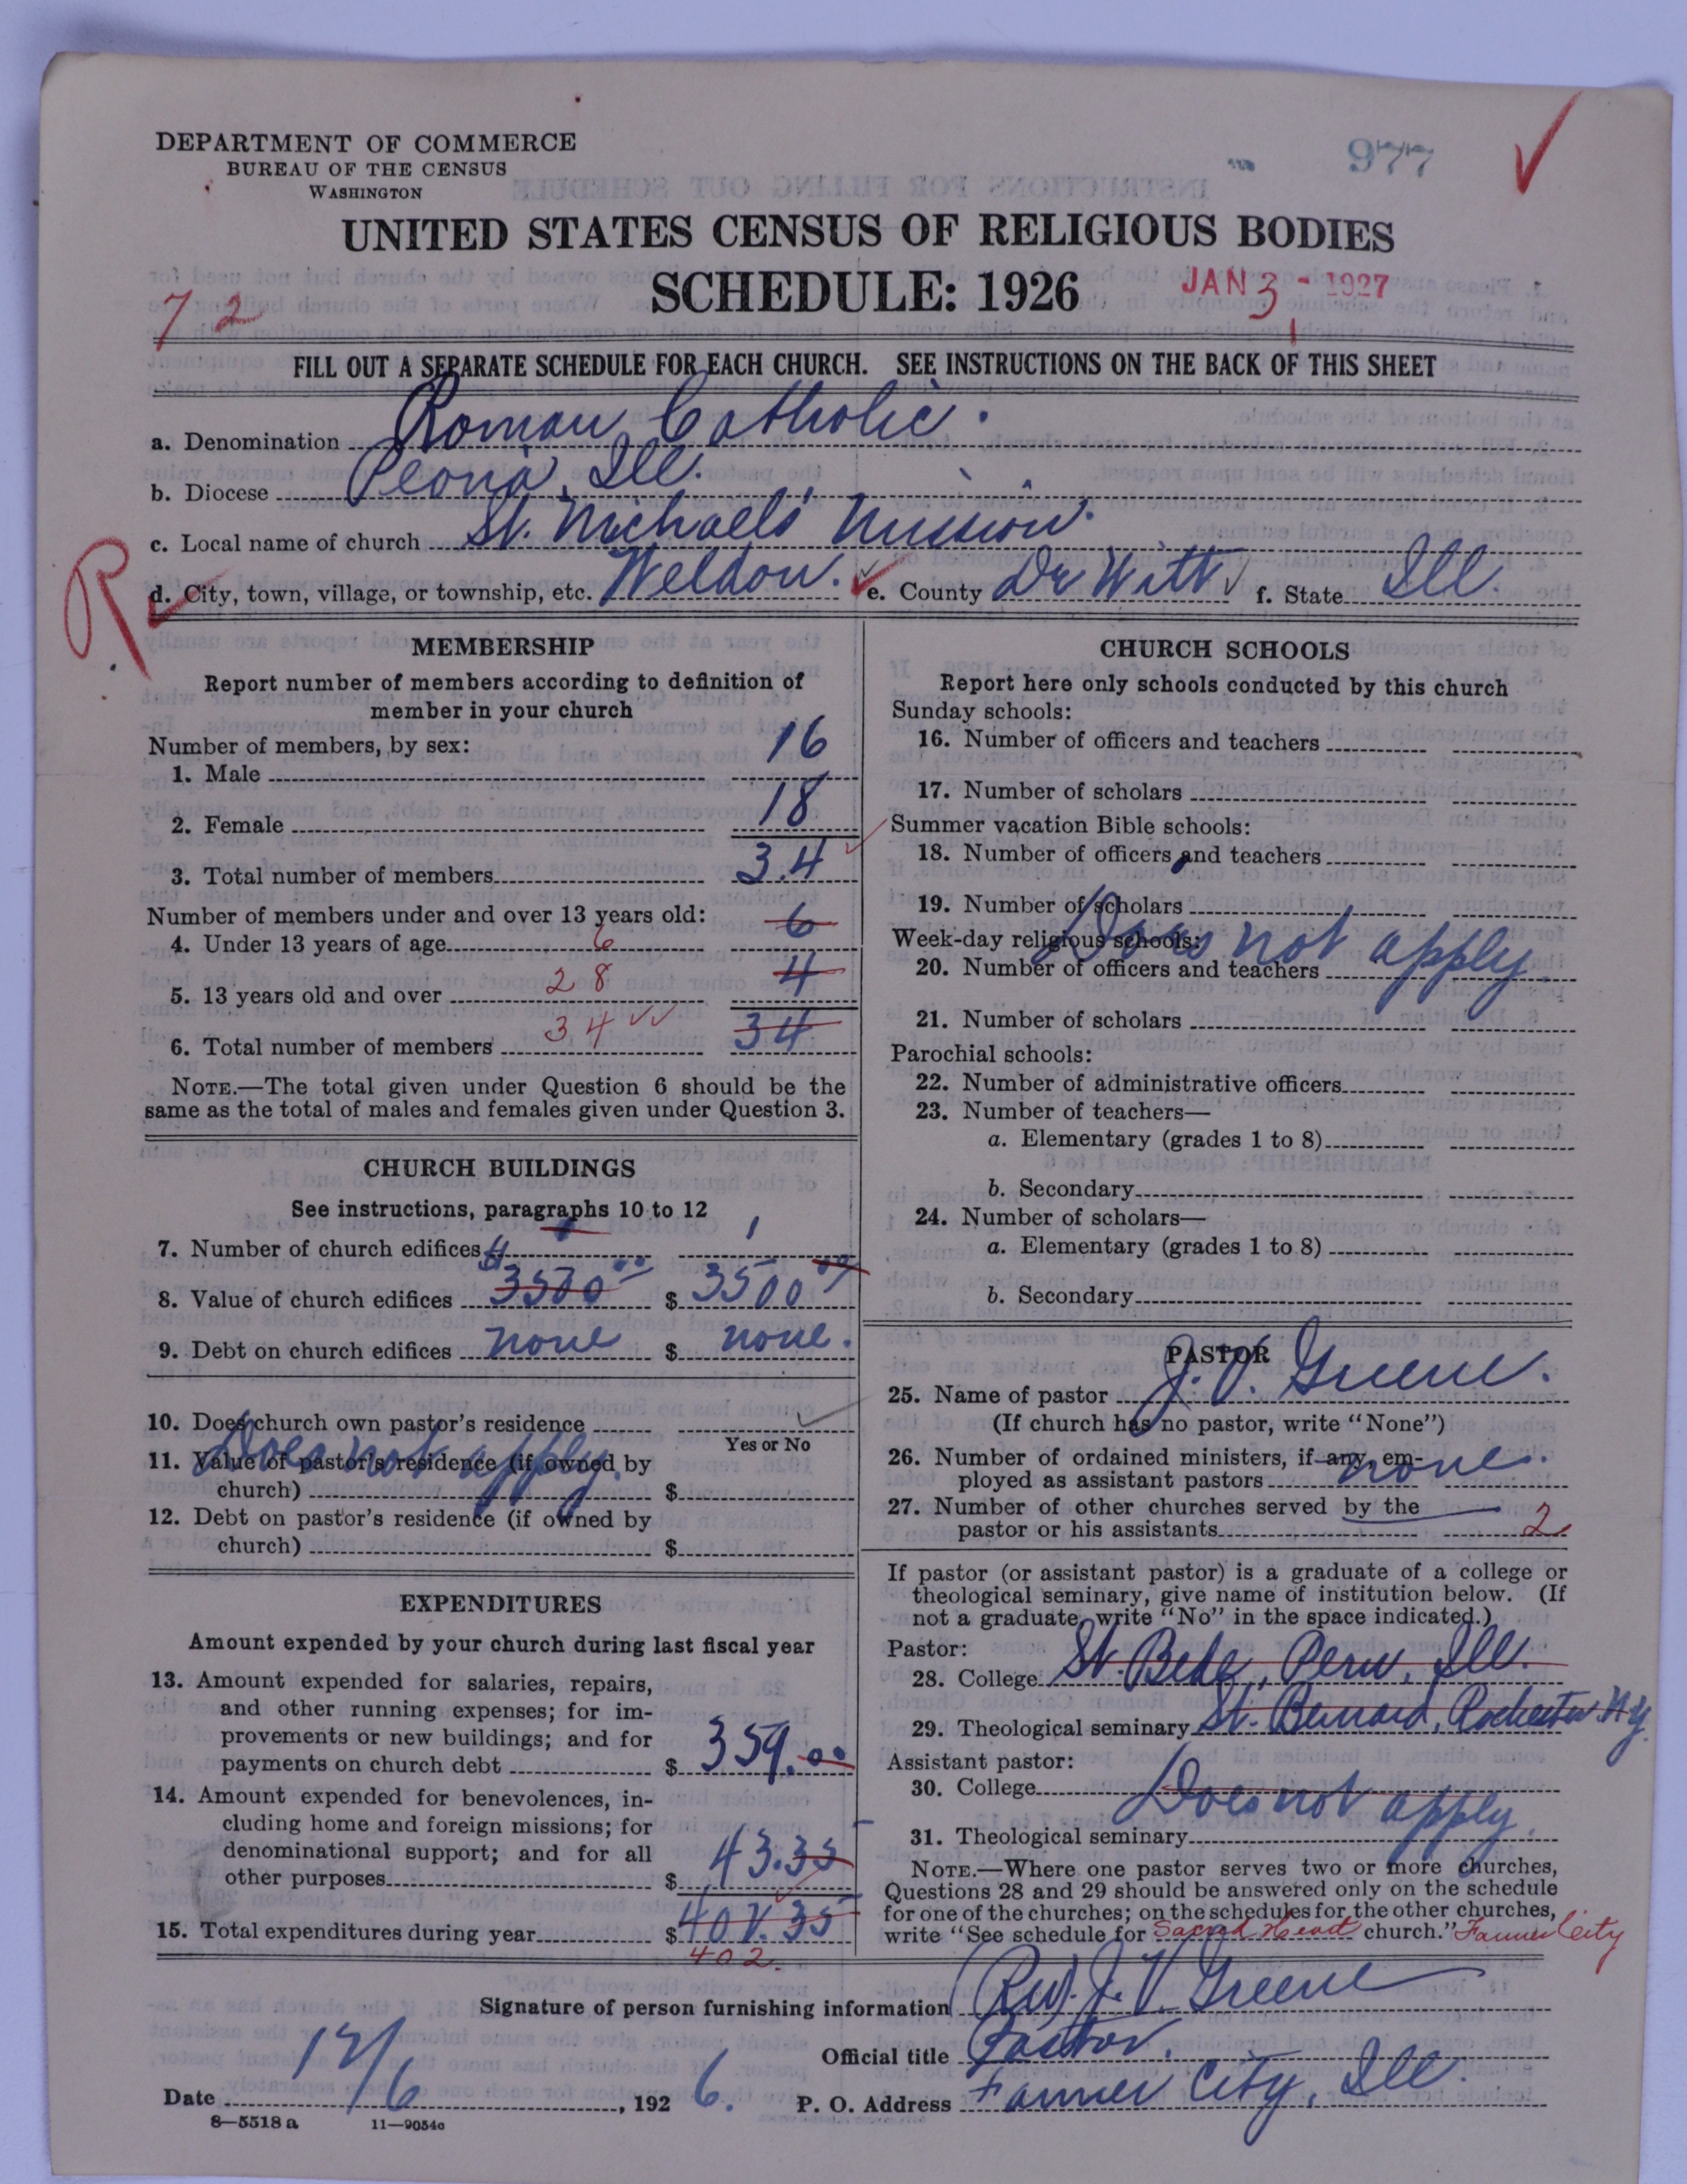 DEPARTMENT OF COMMERCE
BUREAU OF THE CENSUS
WASHINGTON
977
UNITED STATES CENSUS OF RELIGIOUS BODIES
SCHEDULE: 1926
JAN 3 - 1927
72
FILL OUT A SEPARATE SCHEDULE FOR EACH CHURCH. SEE INSTRUCTIONS ON THE BACK OF THIS SHEET
a. Denomination Roman Catholic.
b. Diocese Peoria, Ill.
c. Local name of church St. Michaels Mission.
R
d. City, town, village, or township, etc. Weldon. e. County De Witt f. State Ill.
MEMBERSHIP
Report number of members according to definition of
member in your church
Number of members, by sex:
1. Male 16
2. Female 18
3. Total number of members 34
Number of members under and over 13 years old:
4. Under 13 years of age 6 6
5. 13 years old and over 28 4
6. Total number of members 34 34
NOTE.—The total given under Question 6 should be the
same as the total of males and females given under Question 3.
CHURCH BUILDINGS
See instructions, paragraphs 10 to 12
7. Number of church edifices 1 1
8. Value of church edifices $3500 00 $ 3500 00
9. Debt on church edifices none $ none.
10. Does church own pastor's residence
Yes or No
Does not apply.
11. Value of pastor's residence (if owned by
church) $
12. Debt on pastor's residence (if owned by
church) $
EXPENDITURES
Amount expended by your church during last fiscal year
13. Amount expended for salaries, repairs,
and other running expenses; for im-
provements or new buildings; and for
payments on church debt $ 359.00
14. Amount expended for benevolences, in-
cluding home and foreign missions; for
denominational support; and for all
other purposes $ 43.35
15. Total expenditures during year $ 402.35
402.
CHURCH SCHOOLS
Report here only schools conducted by this church
Sunday schools:
16. Number of officers and teachers
17. Number of scholars
Summer vacation Bible schools:
18. Number of officers and teachers
19. Number of scholars
Does not apply
Week-day religious schools:
20. Number of officers and teachers
21. Number of scholars
Parochial schools:
22. Number of administrative officers
23. Number of teachers—
a. Elementary (grades 1 to 8)
b. Secondary
24. Number of scholars—
a. Elementary (grades 1 to 8)
b. Secondary
PASTOR
25. Name of pastor J. V. Greene.
(If church has no pastor, write "None")
26. Number of ordained ministers, if any, em-
ployed as assistant pastors none.
27. Number of other churches served by the
pastor or his assistants 2
If pastor (or assistant pastor) is a graduate of a college or
theological seminary, give name of institution below. (If
not a graduate, write "No" in the space indicated.)
Pastor:
28. College St. Bede, Peru, Ill.
29. Theological seminary St. Bernard, Rochester N.Y.
Assistant pastor:
30. College Does not apply.
31. Theological seminary
NOTE.—Where one pastor serves two or more churches,
Questions 28 and 29 should be answered only on the schedule
for one of the churches; on the schedules for the other churches,
write "See schedule for Sacred Heart church." Farmer City
Signature of person furnishing information (Rev). J. V. Greene
Official title Pastor.
Date 12/6, 1926. P. O. Address Farmer City, Ill.
8—5518 a 11—9054c